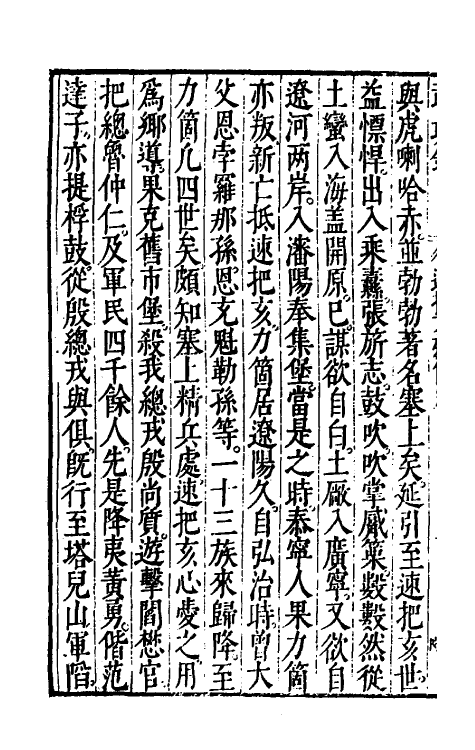 與虎喇哈赤並勃勃著名塞上矣延引至速把亥世
益慓悍出入乘纛張旂志鼓吹吹掌觱篥數數然從
土蠻入海盖開原已謀欲自白土廠入廣寧又欲自
遼河两岸入瀋陽奉集堡當是之時泰寧人果力箇
亦叛新亡抵速把亥力箇居遼陽久自弘治時曾大
父恩孛羅那孫恩克魁勒孫等一十三族來歸降至
力箇凢四世矣頗知塞上精兵處速把亥心愛之用
爲鄉導果克舊市堡殺我總戎殷尚質遊擊閻懋官
把總魯仲仁及軍民四千餘人先是降夷黄勇偕范
達子亦提桴鼓從殷總戎與俱旣行至塔兒山軍陷